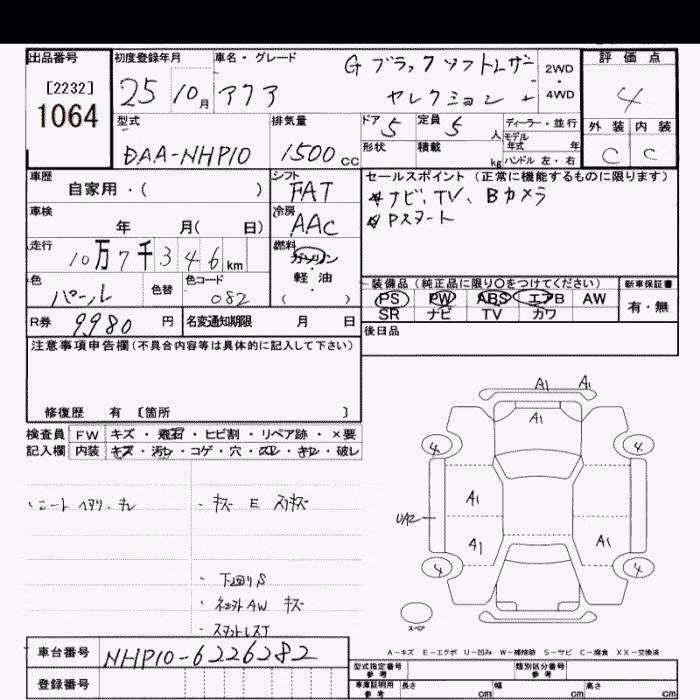 出品番号
[2232]
1064
初度登録年月
25 10月
車名・グレード
アクア
G ブラックソフトレザー
セレクション
2WD
・
4WD
評価点
4
外装 内装
C C
型式
DAA-NHP10
排気量
1500cc
ドア 5
定員 5人
形状
積載 kg
ディーラー・並行
モデル年式 年
ハンドル 左・右
車歴
自家用・( )
シフト
FAT
セールスポイント (正常に機能するものに限ります)
ナビ、TV、Bカメラ
Pスタート
車検
年 月( 日)
冷房
AAC
走行
10万7千346km
燃料
ガソリン
・
軽・油
( )
色
パール
色替
色コード
082
装備品(純正品に限り○をつけてください)
PS PW ABS エアB AW
SR ナビ TV カワ
新車保証書
有・無
R券 9980 円
名変通知期限 月 日
後日品
注意事項申告欄(不具合内容等は具体的に記入して下さい)
修復歴 有 〔箇所 〕
検査員 FW キズ・飛石・ヒビ割・リペア跡・×要
記入欄 内装 キズ・汚れ・コゲ・穴・スレ・キレ・破レ
・シート ヘタリ、キレ
・キズ E スリキズ
・下回りS
・AW キズ
A1 A1
A1
4 4
A1
UA2
A1 A1
4 4
スペア
A-キズ E-エクボ U-凹み W-補修跡 S-サビ C-腐食 XX-交換済
車台番号
NHP10-6226282
登録番号
型式指定番号
参考
類別区分番号
参考
車庫証明用
参考
長さ cm 幅 cm 高さ cm